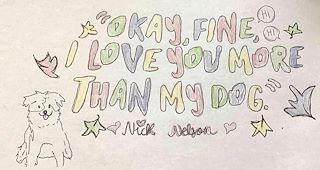 "OKAY, FINE, HI
HI
I LOVE YOU MORE
THAN MY DOG."
Nick Nelson